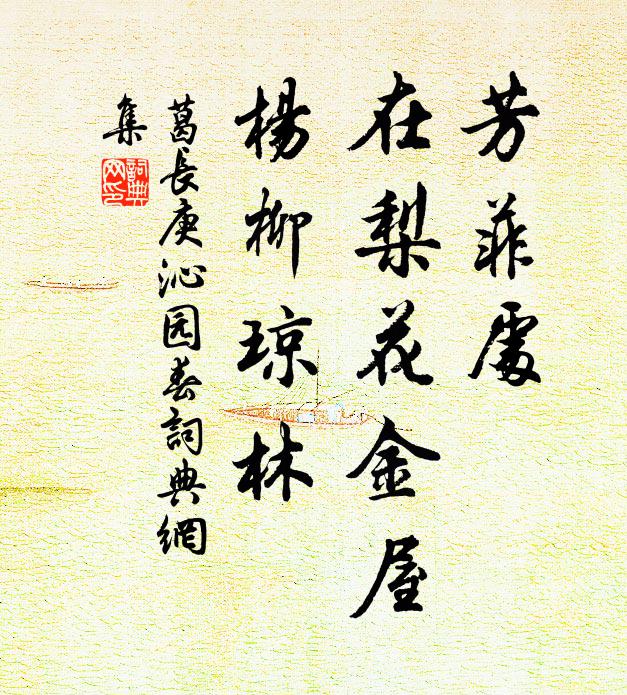 芳菲處
在梨花金屋
楊柳琼林
葛長庚沁园春詞典網
集
詞典網印